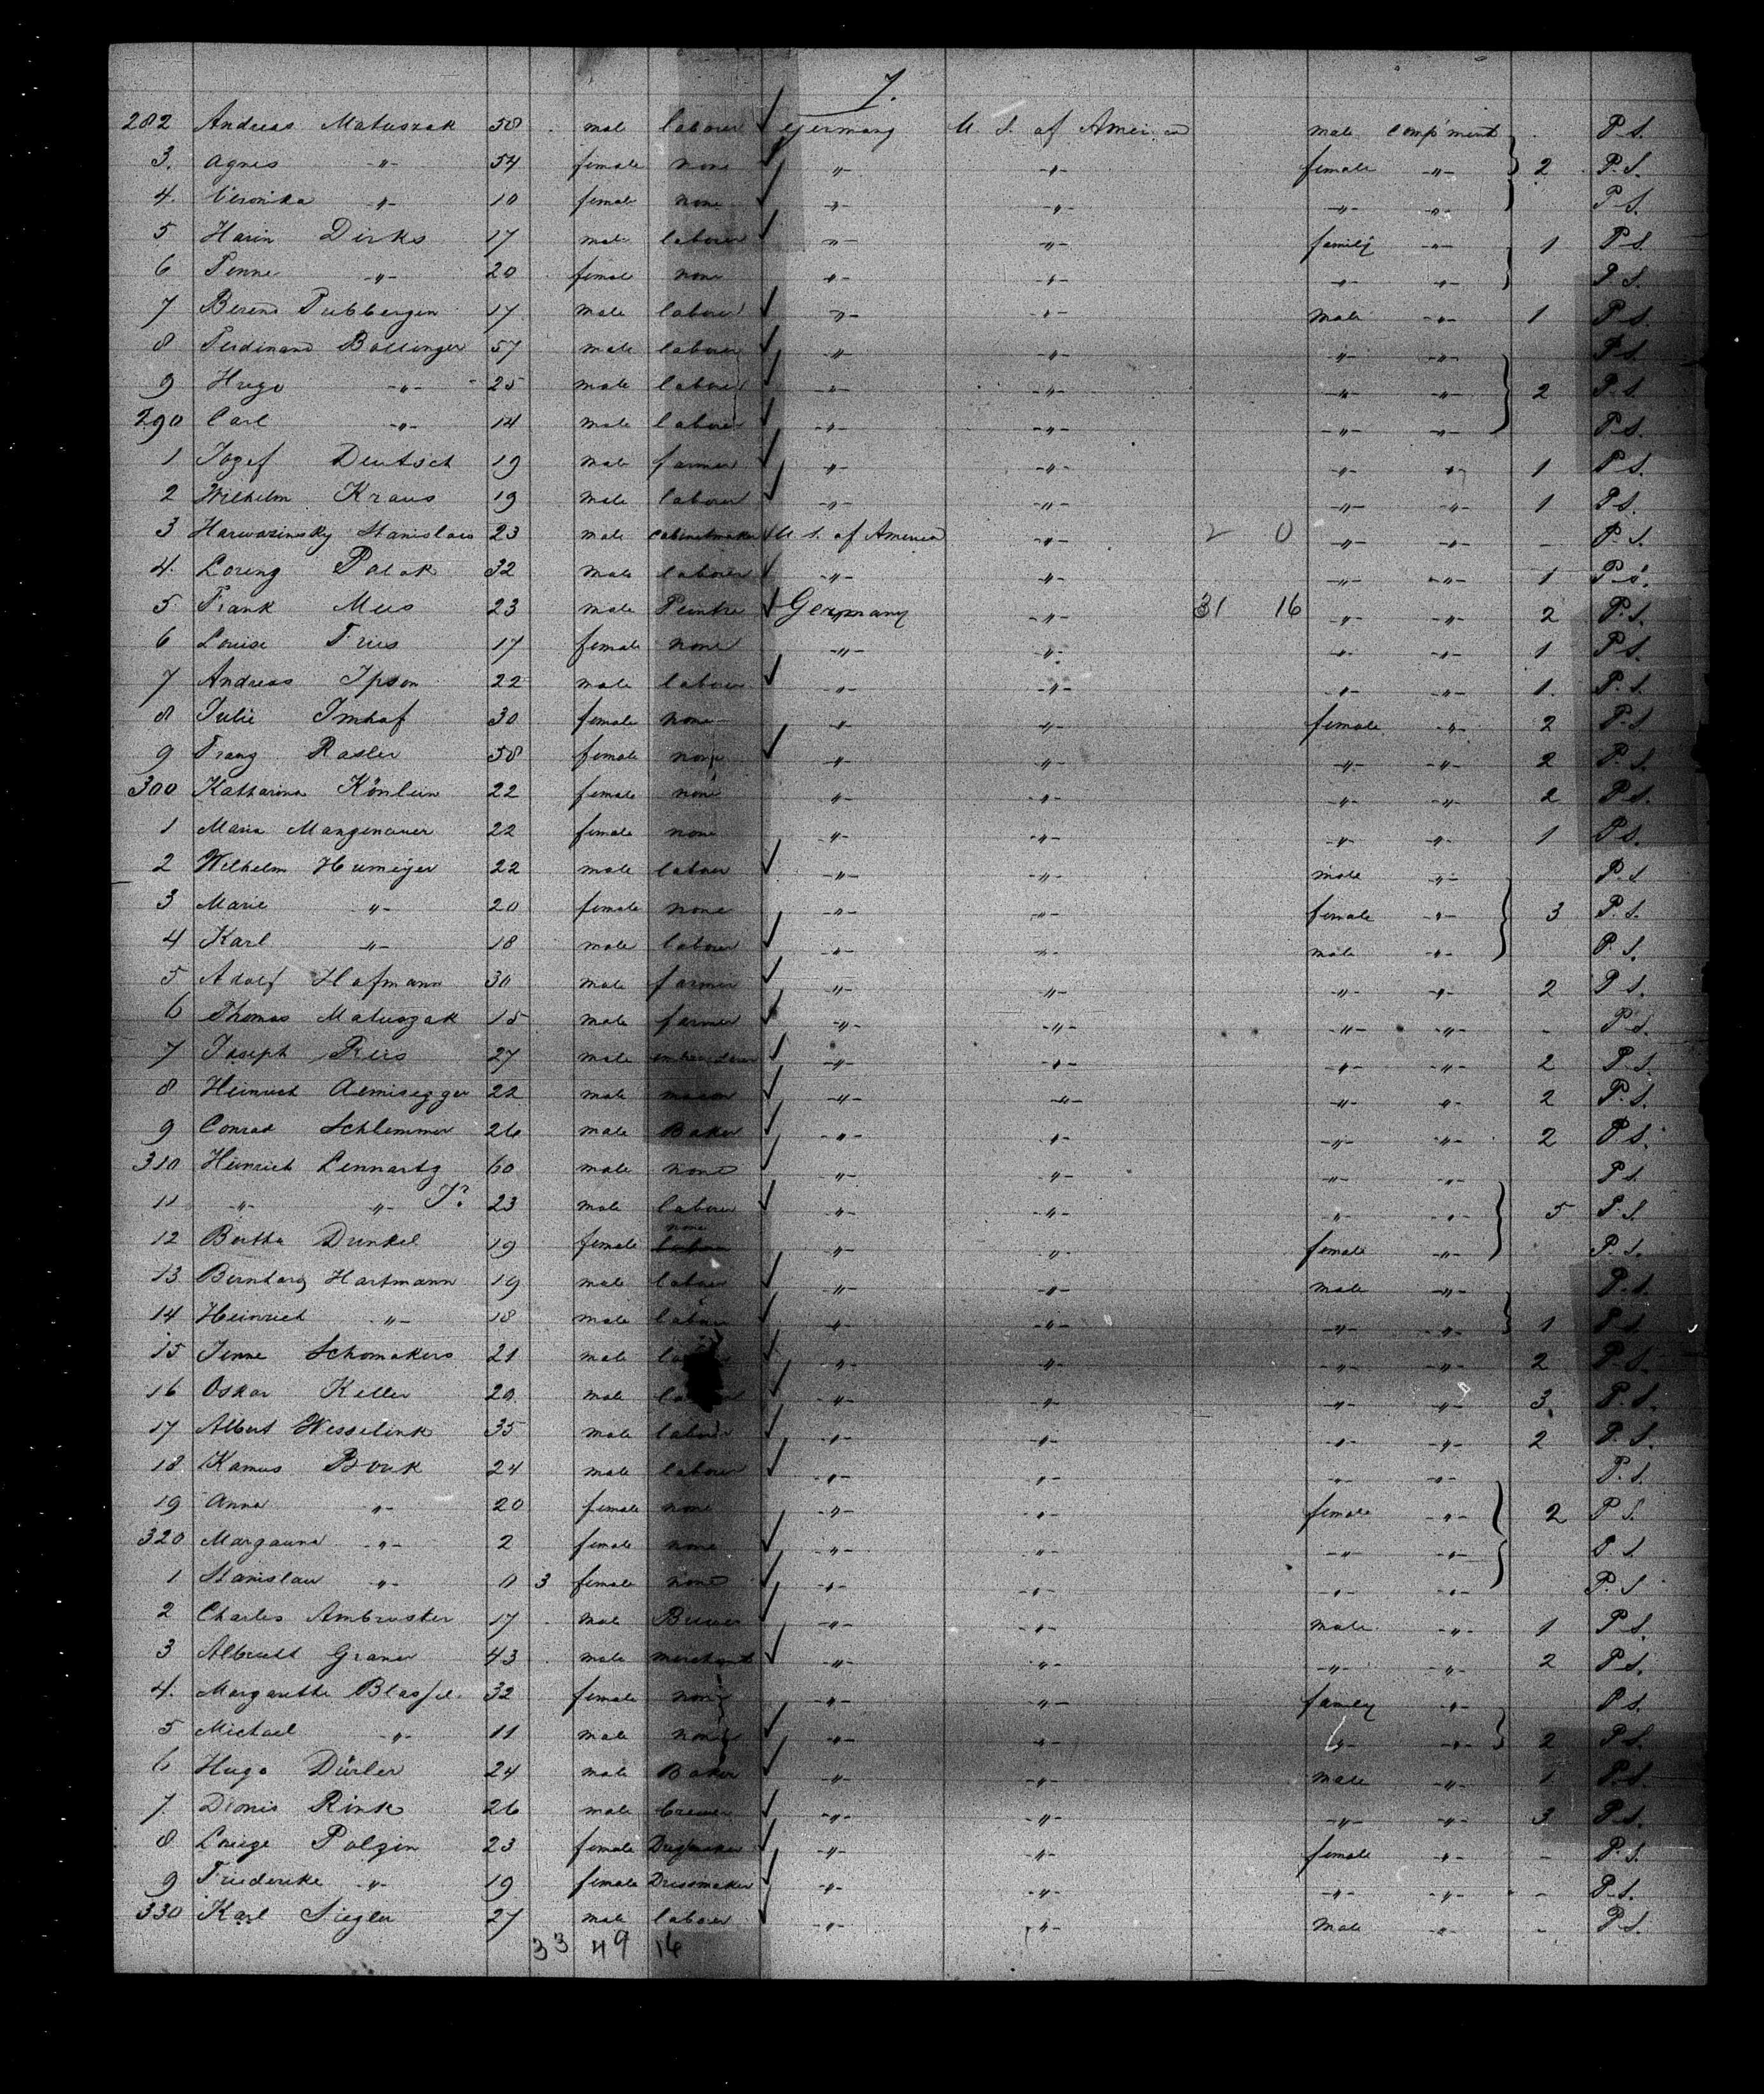 7.
282 Andreas Matuszak 58 male laborer Germany U. S. of America male comp'ment P. S.
3. Agnes -"- 54 female none -"- -"- female -"- 2 P. S.
4. Veronika -"- 10 female none -"- -"- -"- -"- P. S.
5 Harin Dirks 17 male laborer -"- -"- family -"- 1 P. S.
6 -"- 20 female none -"- -"- -"- -"- P. S.
7 Berend 17 male laborer -"- -"- male -"- 1 P. S.
8 Ferdinand Bollinger 57 male laborer -"- -"- -"- -"- P. S.
9 Hugo -"- 25 male laborer -"- -"- -"- -"- 2 P. S.
290 Carl -"- 14 male laborer -"- -"- -"- -"- P. S.
1 Josef Deutsch 19 male farmer -"- -"- -"- -"- 1 P. S.
2 Wilhelm Kraus 19 male laborer -"- -"- -"- -"- 1 P. S.
3 Harwazinsky Stanislaus 23 male cabinetmaker U. S. of America -"- 2 0 -"- -"- - P. S.
4. Lorenz Polak 32 male laborer -"- -"- -"- -"- 1 P. S.
5 Frank Mus 23 male Germany -"- 31 16 -"- -"- 2 P. S.
6 Louise Fries 17 female none -"- -"- -"- -"- 1 P. S.
7 Andreas Ipson 22 male laborer -"- -"- -"- -"- 1. P. S.
8 Julie Imhof 30 female none -"- -"- female -"- 2 P. S.
9 Franz Rasler 58 female none -"- -"- -"- -"- 2 P. S.
300 Katharina Könlein 22 female none -"- -"- -"- -"- 2 P. S.
1 Maria Mangenauer 22 female none -"- -"- -"- -"- 1 P. S.
2 Wilhelm Humeyer 22 male laborer -"- -"- male -"- P. S.
3 Marie -"- 20 female none -"- -"- female -"- 3 P. S.
4 Karl -"- 18 male laborer -"- -"- male -"- P. S.
5 Adolf Hofmann 30 male farmer -"- -"- -"- -"- 2 P. S.
6 Thomas Matuszak 15 male farmer -"- -"- -"- -"- - P. S.
7 Joseph Reis 27 male -"- -"- -"- -"- 2 P. S.
8 Heinrich Aemisegger 22 male mason -"- -"- -"- -"- 2 P. S.
9 Conrad Schlemmer 26 male Baker -"- -"- -"- -"- 2 P. S.
310 Heinrich Lennartz 60 male none -"- -"- -"- -"- P. S.
11 -"- -"- Jr. 23 male laborer -"- -"- -"- -"- 5 P. S.
12 Bertha Dunkel 19 female none -"- -"- female -"- P. S.
13 Bernhard Hartmann 19 male laborer -"- -"- male -"- P. S.
14 Heinrich -"- 18 male laborer -"- -"- -"- -"- 1 P. S.
15 Jenne Schomakers 21 male -"- -"- -"- -"- 2 P. S.
16 Oskar Keller 20 male -"- -"- -"- -"- 3 P. S.
17 Albert Wesselink 35 male laborer -"- -"- -"- -"- 2 P. S.
18 Kamus 24 male laborer -"- -"- -"- -"- P. S.
19 Anna -"- 20 female none -"- -"- female -"- 2 P. S.
320 -"- 2 female none -"- -"- -"- -"- P. S.
1 Stanislau -"- 0 3 female none -"- -"- -"- -"- P. S.
2 Charles Ambruster 17 male Brewer -"- -"- male -"- 1 P. S.
3 Albrecht Graner 43 male merchant -"- -"- -"- -"- 2 P. S.
4. Margarethe 32 female none -"- -"- family -"- P. S.
5 Michael -"- 11 male none -"- -"- -"- -"- 2 P. S.
6 Hugo Dürler 24 male Baker -"- -"- male -"- 1 P. S.
7. Dionis Rink 26 male brewer -"- -"- -"- -"- 3 P. S.
8 Louise Polzin 23 female Dressmaker -"- -"- female -"- - P. S.
9 Friederike -"- 19 female Dressmaker -"- -"- -"- -"- - P. S.
330 Karl Siegler 27 male laborer -"- -"- male -"- - P. S.
33 49 16